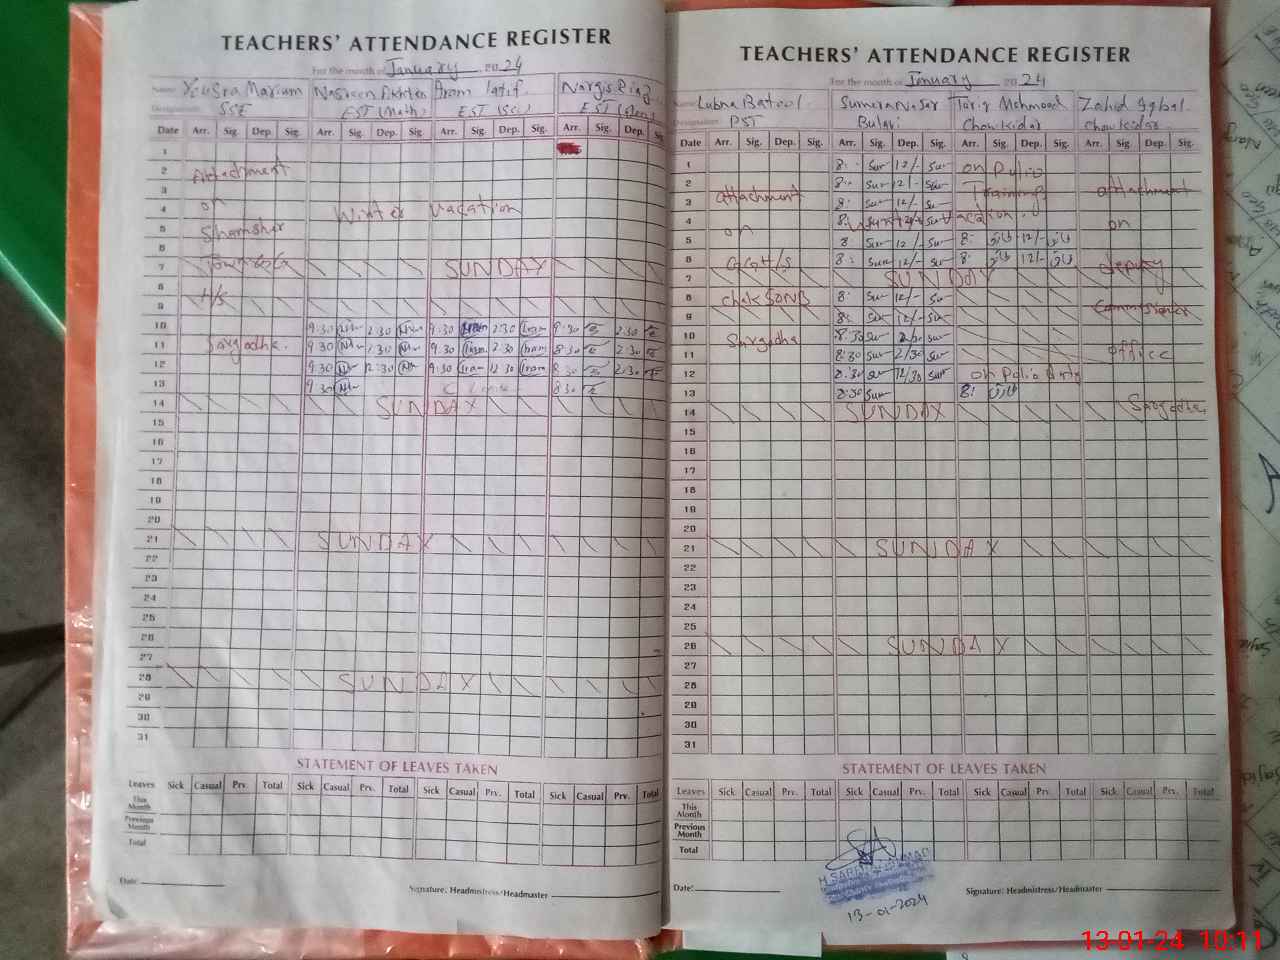 TEACHERS' ATTENDANCE REGISTER
For the month of January 2024
Name: Yousra Marium Nasreen Akhter Iram latif Nargis Riaz
Designation: SSE EST (Math) EST (Sci)
Date Arr. Sig. Dep. Sig. Arr. Sig. Dep. Sig. Arr. Sig. Dep. Sig. Arr. Sig. Dep. Sig.
1
2 Attachment
3 on
4 Winter vacation
5 Shamsher
6
7 Town SUNDAY
8 H/s
9
10 9:30 2:30 9:30 Iram 2:30 Iram 9:30 2:30
11 Sargodha. 9:30 2:30 9:30 Iram 2:30 Iram 8:30 2:30
12 9:30 12:30 9:30 Iram 12:30 Iram 8:30 2:30
13 9:30 C Leave 8:30
14 SUNDAY
15
16
17
18
19
20
21 SUNDAY
22
23
24
25
26
27
28 SUNDAY
29
30
31
STATEMENT OF LEAVES TAKEN
Leaves Sick Casual Prv. Total Sick Casual Prv. Total Sick Casual Prv. Total Sick Casual Prv. Total
This Month
Previous Month
Total
Date:
Signature: Headmistress/Headmaster
TEACHERS' ATTENDANCE REGISTER
For the month of January 2024
Name: Lubna Batool Sumera Nasar Tariq Mehmood Zahid Iqbal
Designation: PST Bulavi Chowkidar Chowkidar
Date Arr. Sig. Dep. Sig. Arr. Sig. Dep. Sig. Arr. Sig. Dep. Sig. Arr. Sig. Dep. Sig.
1 8: Sum 12/- Sum on Polio
2 attachment 8: Sum 12/- Sum Trainings attachment
3 8: Sum 12/- Sum
4 on 8: Sum 12/- Sum on
5 8: Sum 12/- Sum 8: 12/-
6 GGH/S 8: Sum 12/- Sum 8: 12/- deputy
7 SUNDAY
8 chak 8: Sum 12/- Sum Commissioner
9 8: Sum 12/- Sum
10 Sargodha 8:30 Sum 2:30 Sum
11 8:30 Sum 2/30 Sum office
12 8:30 Sum 12/30 Sum on Polio duty
13 8:30 Sum 8:
14 SUNDAY Sargodha
15
16
17
18
19
20
21 SUNDAY
22
23
24
25
26 SUNDAY
27
28
29
30
31
STATEMENT OF LEAVES TAKEN
Leaves Sick Casual Prv. Total Sick Casual Prv. Total Sick Casual Prv. Total Sick Casual Prv. Total
This Month
Previous Month
Total
Date:
13-01-2024
Signature: Headmistress/Headmaster
13-01-24 10:11